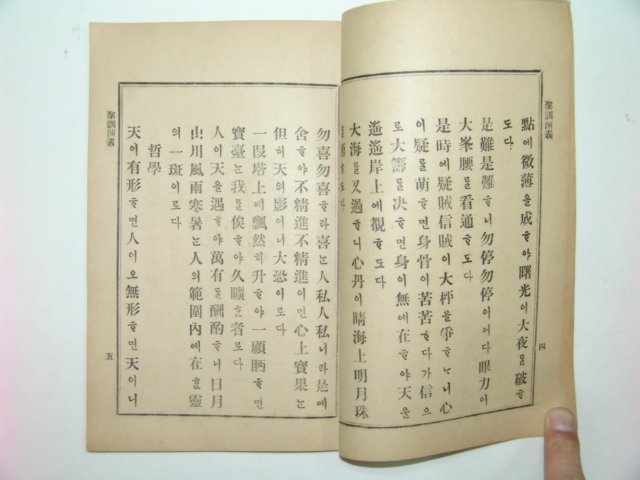 聖訓演義
點에微薄을成ᄒᆞ야曙光이大夜를破ᄒᆞ
도다
是難是難ᄒᆞ니勿停勿停이어다眼力이
大峯腰를看通ᄒᆞ도다
是時에疑賊信賊이大枰을爭ᄒᆞᄂᆞ니心
이疑를萌ᄒᆞ면身骨이苦苦ᄒᆞ다가信으
로大籌를决ᄒᆞ면身이無에在ᄒᆞ야天을
遙遙岸上에覩ᄒᆞ도다
大海를又過ᄒᆞ니心丹이晴海上明月珠
도다
四
勿喜勿喜ᄒᆞ라喜ᄂᆞᆫ人私人私니라是에
舍ᄒᆞ야不精進不精進이면心上寶果ᄂᆞᆫ
但히天의影이니大恐이로다
一段塔上에飄然히升ᄒᆞ야一顧眄ᄒᆞ면
寶臺ᄂᆞᆫ我를俟ᄒᆞ야久曠ᄒᆞᆫ者로다
人이天을遇ᄒᆞ야萬有를酬酌ᄒᆞ니日月
山川風雨寒暑ᄂᆞᆫ人의範圍內에在ᄒᆞᆫ靈
의一斑이로다
哲學
天이有形ᄒᆞ면人이오無形ᄒᆞ면天이니
聖訓演義
五